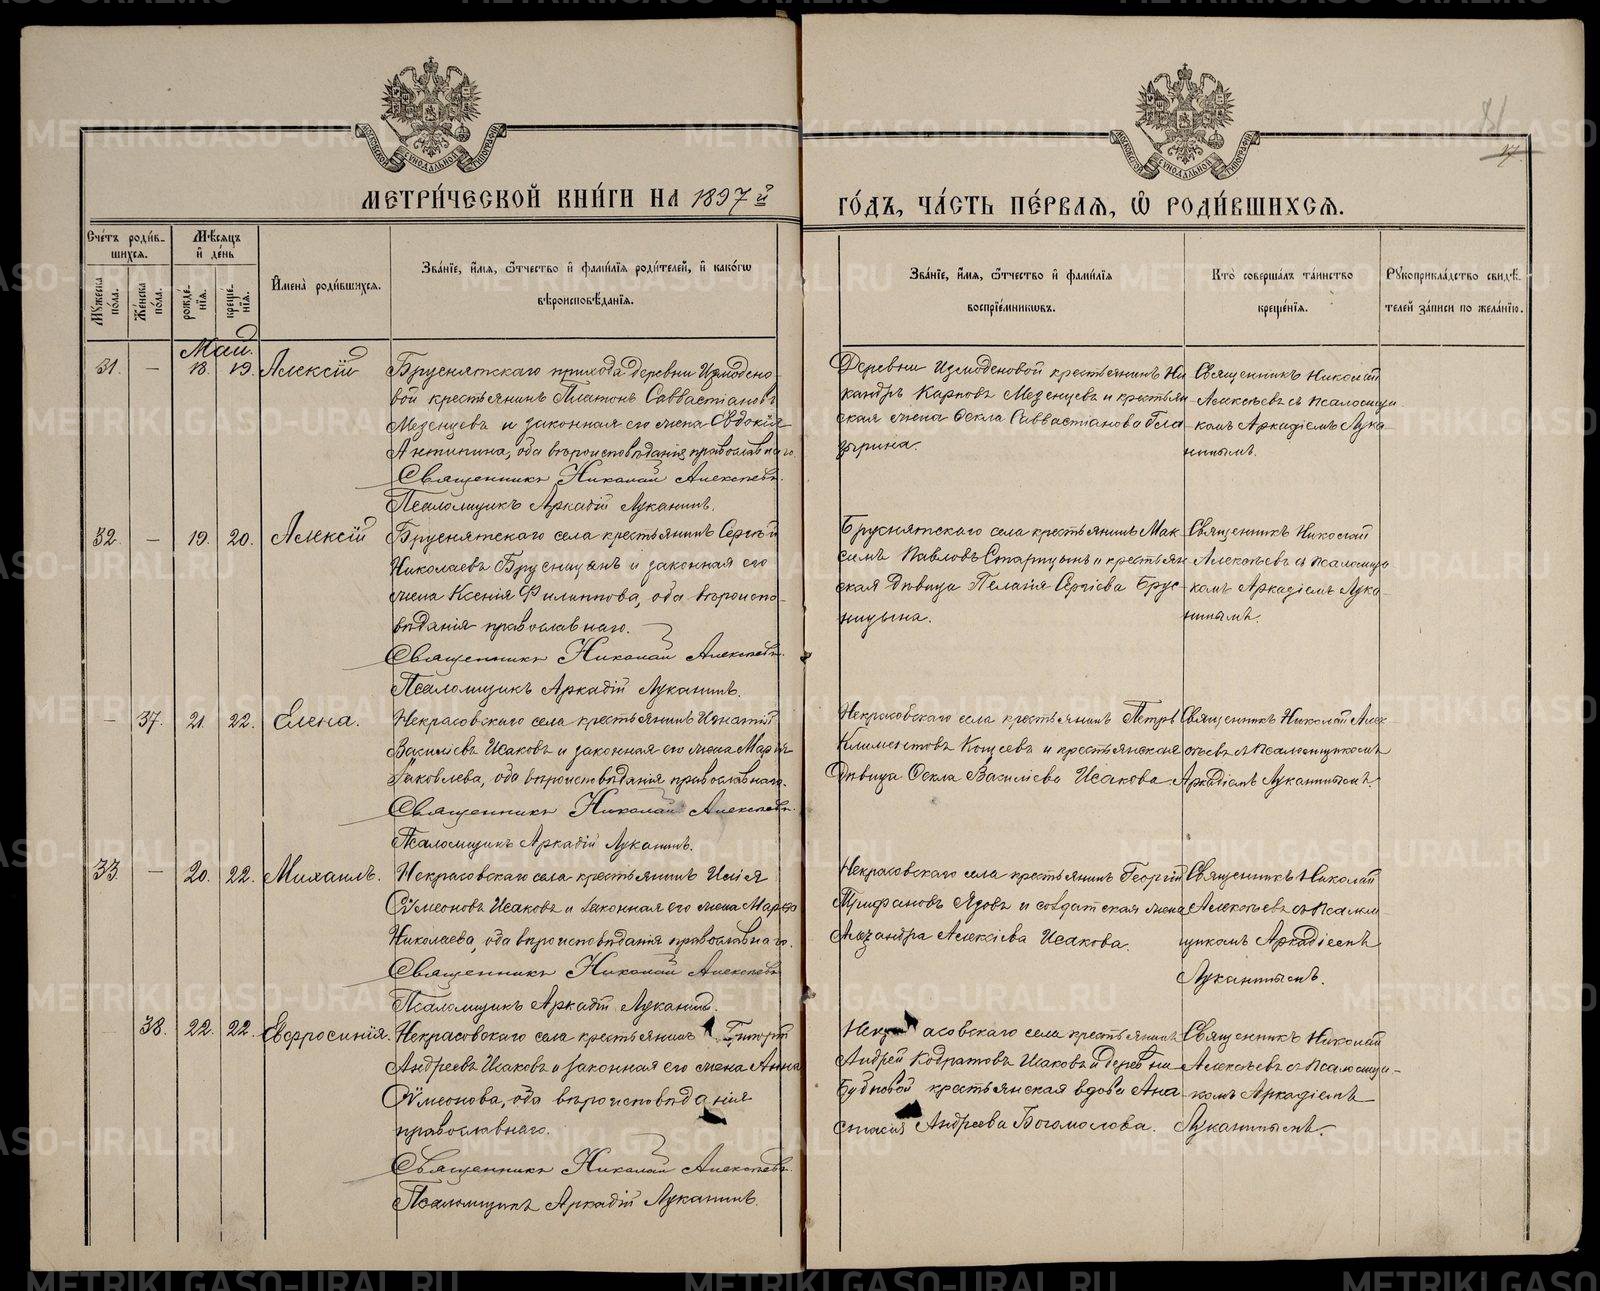 МЕТРИ́ЧЕСКОЙ КНИ́ГИ НА 1897 й
ГО́ДЪ, ЧА́СТЬ ПЕ́РВАЯ, Ѡ҆ РОДИ́ВШИХСЯ.
Сче́тъ роди́в-
шихся.
Мѣ́сяцъ
и҆ де́нь
Мужеска
по́ла.
Же́нска
по́ла.
рожде́-
нїя.
креще́-
нїя.
И҆мена̀ роди́вшихся.
Зва́нїе, и҆́мя, ѻ҆́тчество и҆ фами́лїя роди́телей, и҆ како́гѡ
вѣроисповѣ́данїя.
Зва́нїе, и҆́мя, ѻ҆́тчество и҆ фами́лїя
воспрїе́мникѡвъ.
Кто̀ соверша́лъ та́инство
креще́нїя.
Рꙋкоприкла́дство свидѣ́-
телей за́писи по жела́нїю.
Май.
31. — 18. 19. Алексій
Бруснятскаго прихода деревни Измодено-
вой крестьянинъ Платонъ Савваст­іановъ
Мезенцевъ и законная его жена Евдокія
Антипина, оба вѣроисповѣданія православнаго.
Священникъ Николай Алексѣевъ.
Псаломщикъ Аркадій Луканинъ.
Деревни Измоденовой крестьянинъ Ни
кандръ Карповъ Мезенцевъ и крестьян
ская жена Ѳекла Саввастіанова Гла
зырина.
Священникъ Николай
Алексѣевъ съ псаломщи
комъ Аркадіемъ Лука
нинымъ.
32. — 19. 20. Алексій
Бруснятскаго села крестьянинъ Сергѣй
Николаевъ Брусницынъ и законная его
жена Ксенія Филиппова, оба вѣроиспо-
вѣданія православнаго.
Священникъ Николай Алексѣевъ.
Псаломщикъ Аркадій Луканинъ.
Бруснятскаго села крестьянинъ Мак
симъ Павловъ Старицынъ и крестьян
ская дѣвица Пелагія Сергіева Брус
ницына.
Священникъ Николай
Алексѣевъ съ псаломщи
комъ Аркадіемъ Лука-
нинымъ.
— 37. 21. 22. Елена.
Некрасовскаго села крестьянинъ Игнатій
Василіевъ Исаковъ и законная его жена Марія
Яковлева, оба вѣроисповѣданія православнаго.
Священникъ Николай Алексѣевъ.
Псаломщикъ Аркадій Луканинъ.
Некрасовскаго села крестьянинъ Петръ
Климентовъ Кощеевъ и крестьянская
дѣвица Ѳекла Василіева Исакова.
Священникъ Николай Алек
сѣевъ съ псаломщикомъ
Аркадіемъ Луканинымъ.
33 — 20. 22. Михаилъ.
Некрасовскаго села крестьянинъ Илія
Сѵмеоновъ Исаковъ и законная его жена Марфа
Николаева, оба вѣроисповѣданія православнаго.
Священникъ Николай Алексѣевъ
Псаломщикъ Аркадій Луканинъ.
Некрасовскаго села крестьянинъ Георгій
Трифановъ Язовъ и солдатская жена
Александра Алексіева Исакова.
Священникъ Николай
Алексѣевъ съ псалом-
щикомъ Аркадіемъ
Луканинымъ.
38. 22. 22. Евфросинія.
Некрасовскаго села крестьянинъ Григорій
Андреевъ Исаковъ и законная его жена Анна
Сѵмеонова, оба вѣроисповѣданія
православнаго.
Священникъ Николай Алексѣевъ.
Псаломщикъ Аркадій Луканинъ.
Некрасовскаго села крестьянинъ
Андрей Кодратовъ Исаковъ и деревни
крестьянская вдова Ана
стасія Андреева Богомолова.
Священникъ Николай
Алексѣевъ съ псаломщи-
комъ Аркадіемъ
Луканинымъ.